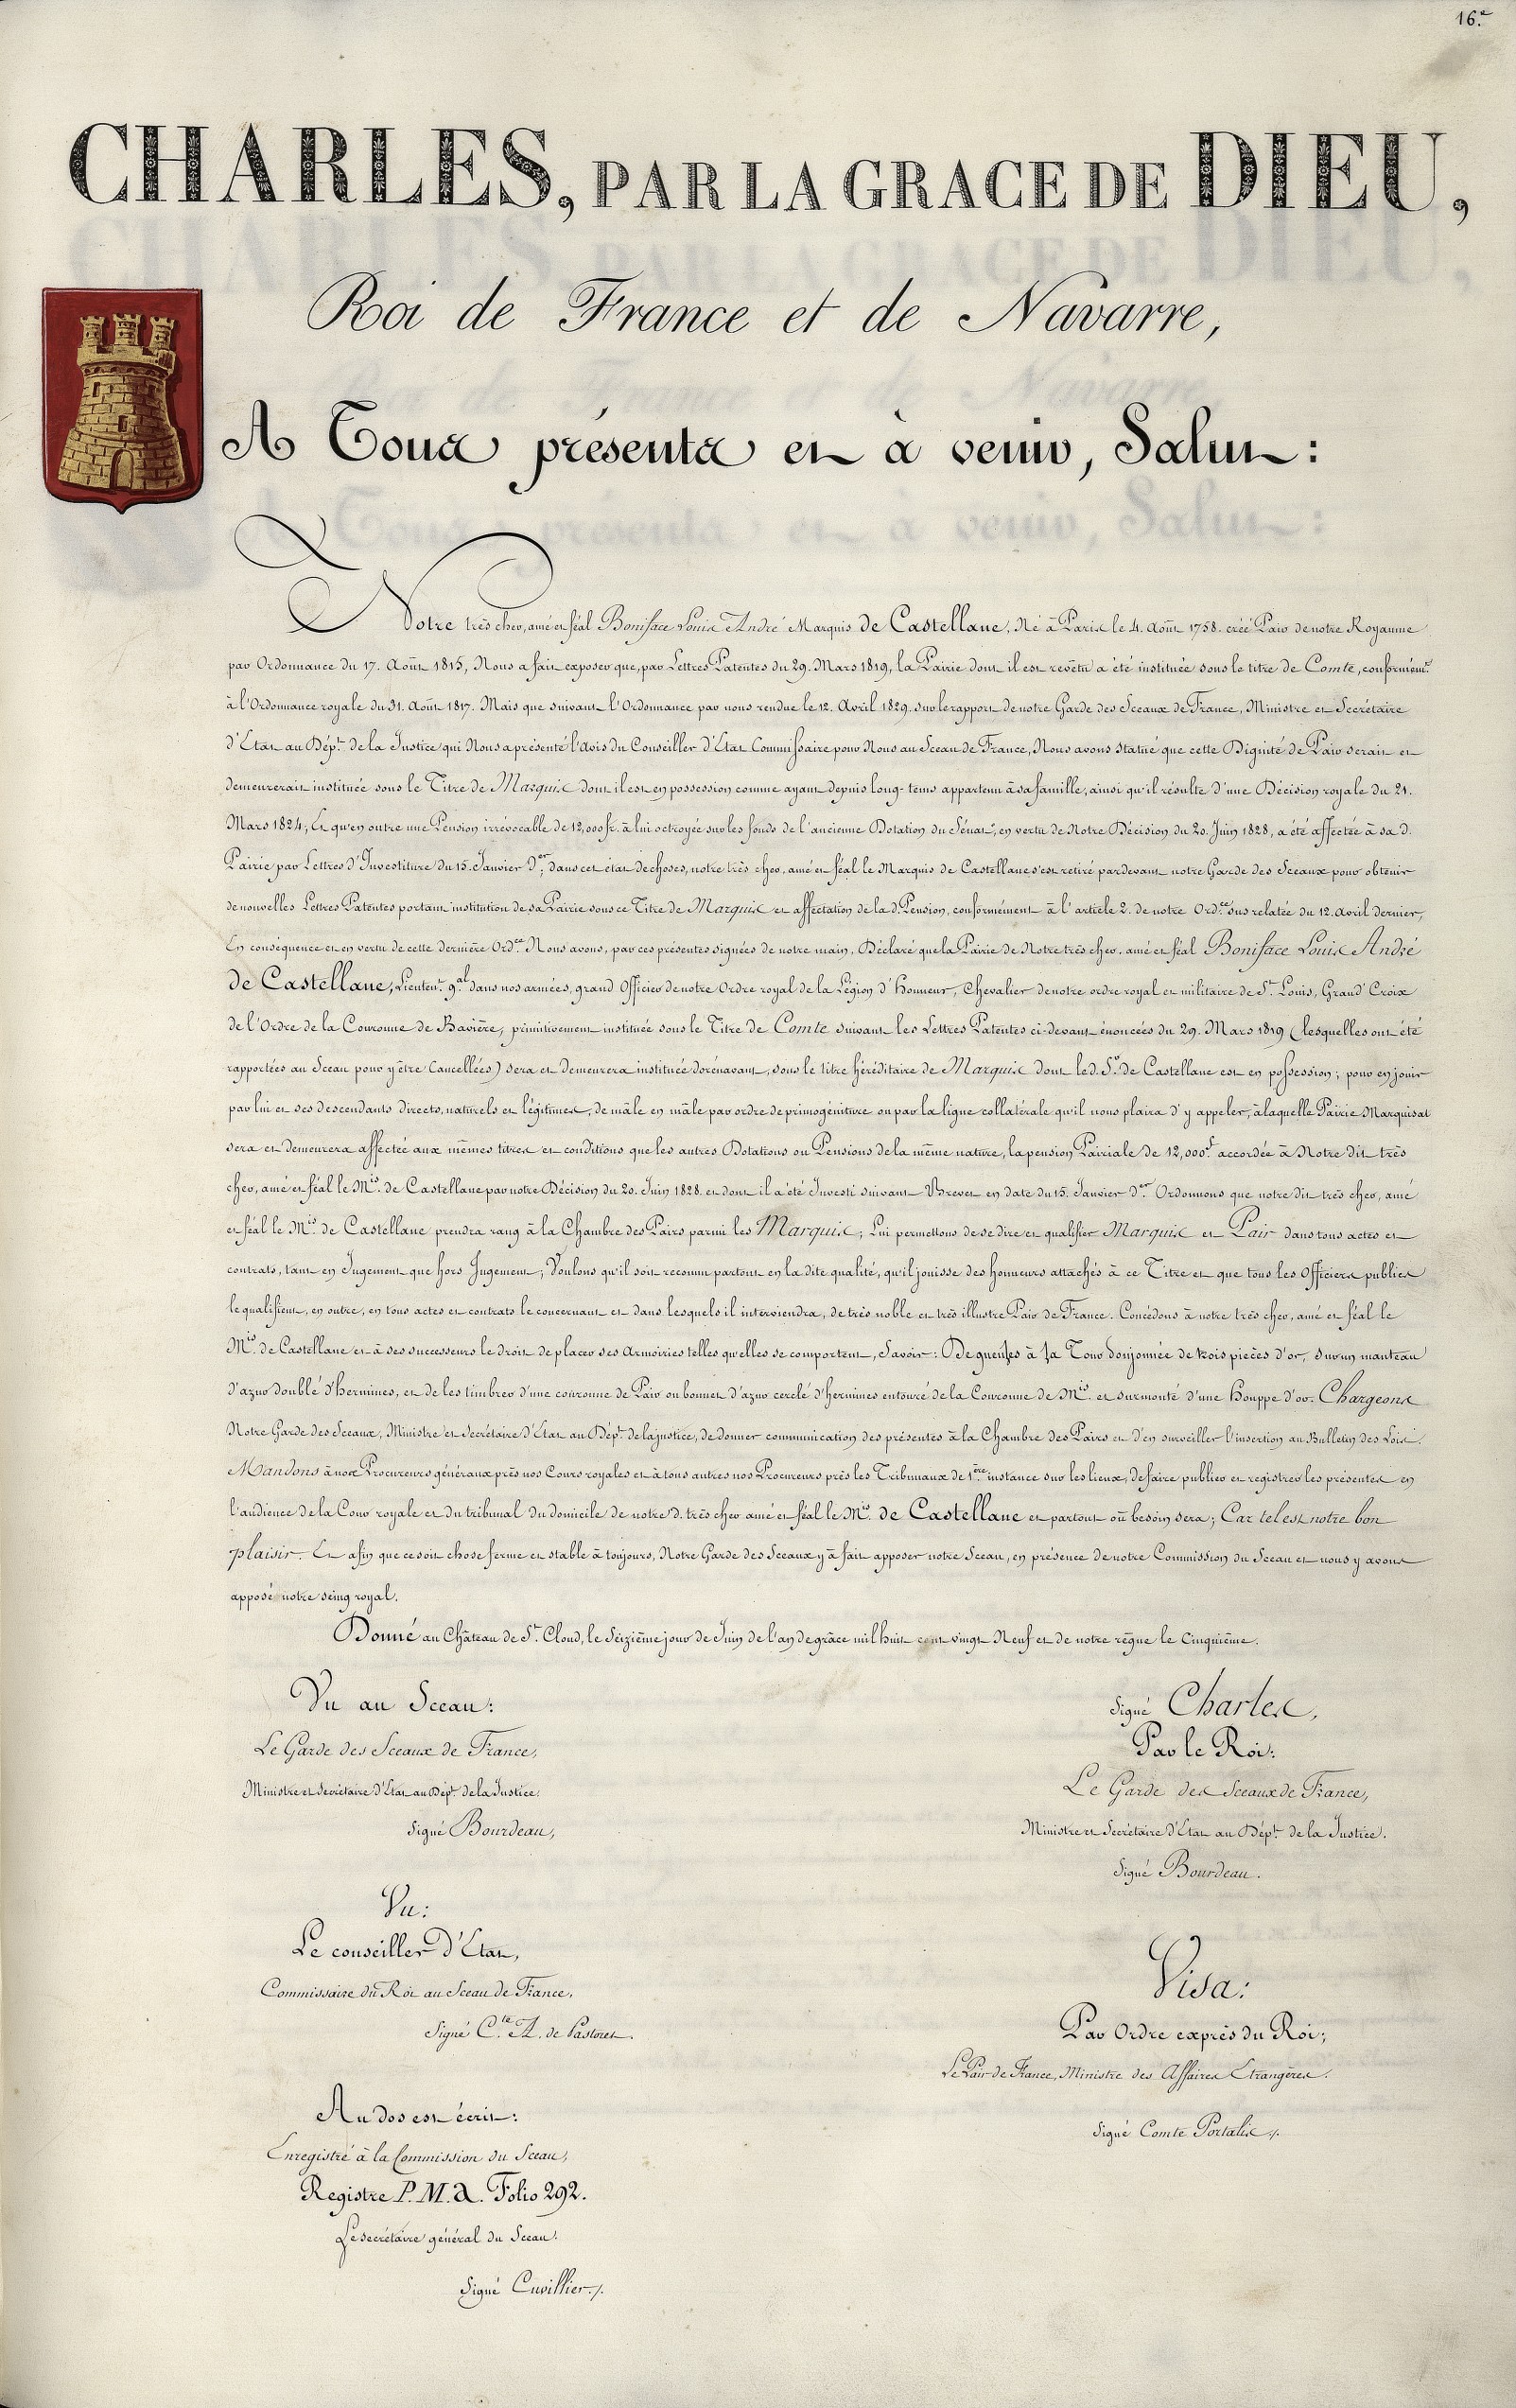 16.e
CHARLES, PAR LA GRACE DE DIEU,
Roi de France et de Navarre,
A Tous présents et à venir, Salut :
Notre très cher, amé et féal Boniface Louis André Marquis de Castellane, Né à Paris le 4. Août 1758. créé Pair de notre Royaume
par Ordonnance du 17. Août 1815, Nous a fait exposer que, par Lettres Patentes du 29. Mars 1819, la Pairie dont il est revêtu a été instituée sous le titre de Comte, conformémt.
à l'Ordonnance royale du 31. Août 1817. Mais que suivant l'Ordonnance par nous rendue le 12. Avril 1829. sur le rapport de notre Garde des Sceaux de France, Ministre et Secrétaire
d'Etat au Dépt. de la Justice qui Nous a présenté l'avis du Conseiller d'Etat Commissaire pour Nous au Sceau de France, Nous avons statué que cette Dignité de Pair serait et
demeurerait instituée sous le Titre de Marquis dont il est en possession comme ayant depuis long-tems appartenu à sa famille, ainsi qu'il résulte d'une Décision royale du 21.
Mars 1824; Et qu'en outre une Pension irrévocable de 12,000 fr. à lui octroyée sur les fonds de l'ancienne Dotation du Sénat, en vertu de Notre Décision du 20. Juin 1828, a été affectée à sa d.
Pairie par Lettres d'Investiture du 15. Janvier d.er; dans cet état de choses, notre très cher, amé et féal le Marquis de Castellane s'est retiré pardevant notre Garde des Sceaux pour obtenir
de nouvelles Lettres Patentes portant institution de sa Pairie sous ce Titre de Marquis et affectation de la d. Pension, conformément à l'article 2. de notre Ord.ce sus relatée du 12. avril dernier,
En conséquence et en vertu de cette dernière Ord.ce Nous avons, par ces présentes signées de notre main, Déclaré que la Pairie de Notre très cher, amé et féal Boniface Louis André
de Castellane, Lieutent. gal. dans nos armées, grand Officier de notre Ordre royal de la Légion d'Honneur, Chevalier de notre ordre royal et militaire de St. Louis, Grand'Croix
de l'Ordre de la Couronne de Bavière, primitivement instituée sous le Titre de Comte suivant les Lettres Patentes ci-devant énoncées du 29. Mars 1819 (lesquelles ont été
rapportées au Sceau pour y être Cancellées) sera et demeurera instituée dorénavant, sous le titre héréditaire de Marquis dont le d. Sr. de Castellane est en possession ; pour en jouir
par lui et ses descendants directs, naturels et légitimes, de mâle en mâle par ordre de primogéniture ou par la ligne collatérale qu'il nous plaira d'y appeler, à laquelle Pairie Marquisat
sera et demeurera affectée aux mêmes titres et conditions que les autres Dotations ou Pensions de la même nature, la pension Pairiale de 12,000f. accordée à Notre dit très
cher, amé et féal le Mis. de Castellane par notre Décision du 20. Juin 1828. et dont il a été Investi suivant Brevet en date du 15. Janvier d.er Ordonnons que notre dit très cher, amé
et féal le Mis. de Castellane prendra rang à la Chambre des Pairs parmi les Marquis ; Lui permettons de se dire et qualifier Marquis et Pair dans tous actes et
contrats, tant en Jugement que hors Jugement ; Voulons qu'il soit reconnu partout en la dite qualité, qu'il jouisse des honneurs attachés à ce Titre et que tous les Officiers publics
le qualifient, en outre, en tous actes et contrats le concernant et dans lesquels il interviendra, de très noble et très illustre Pair de France. Concédons à notre très cher, amé et féal le
Mis. de Castellane et à ses successeurs le droit de placer ses Armoiries telles qu'elles se comportent, Savoir : De gueules à la Tour donjonnée de trois pièces d'or, sur un manteau
d'azur doublé d'hermines, et de les timbrer d'une couronne de Pair ou bonnet d'azur cerclé d'hermines entouré de la Couronne de Mis. et surmonté d'une houppe d'or. Chargeons
Notre Garde des Sceaux, Ministre et Secrétaire d'Etat au Dépt. de la justice, de donner communication des présentes à la Chambre des Pairs et d'en surveiller l'insertion au Bulletin des Lois.
Mandons à nos Procureurs généraux près nos Cours royales et à tous autres nos Procureurs près les Tribunaux de 1ère instance sur les lieux, de faire publier et registrer les présentes en
l'audience de la Cour royale et du tribunal du domicile de notre d. très cher amé et féal le Mis. de Castellane et partout où besoin sera ; Car tel est notre bon
plaisir. Et afin que ce soit chose ferme et stable à toujours, Notre Garde des Sceaux y a fait apposer notre Sceau, en présence de notre Commission du Sceau et nous y avons
apposé notre seing royal.
Donné au Château de St. Cloud, le Seizième jour de Juin de l'an de grâce mil huit cent vingt Neuf et de notre règne le Cinquième.
Vu au Sceau :
Le Garde des Sceaux de France,
Ministre et Secrétaire d'Etat au Dépt. de la Justice,
Signé Bourdeau,
Signé Charles,
Par le Roi :
Le Garde des Sceaux de France,
Ministre et Secrétaire d'Etat au Dépt. de la Justice.
Signé Bourdeau.
Vu :
Le conseiller d'Etat,
Commissaire du Roi au Sceau de France,
Signé C.te A. de Pastoret.
Visa :
Par Ordre exprès du Roi ;
Le Pair de France, Ministre des Affaires Etrangères.
Signé Comte Portalis ./.
Au dos est écrit :
Enregistré à la Commission du Sceau,
Registre P. M. 2. Folio 292.
Le secrétaire général du Sceau.
Signé Cuvillier ./.